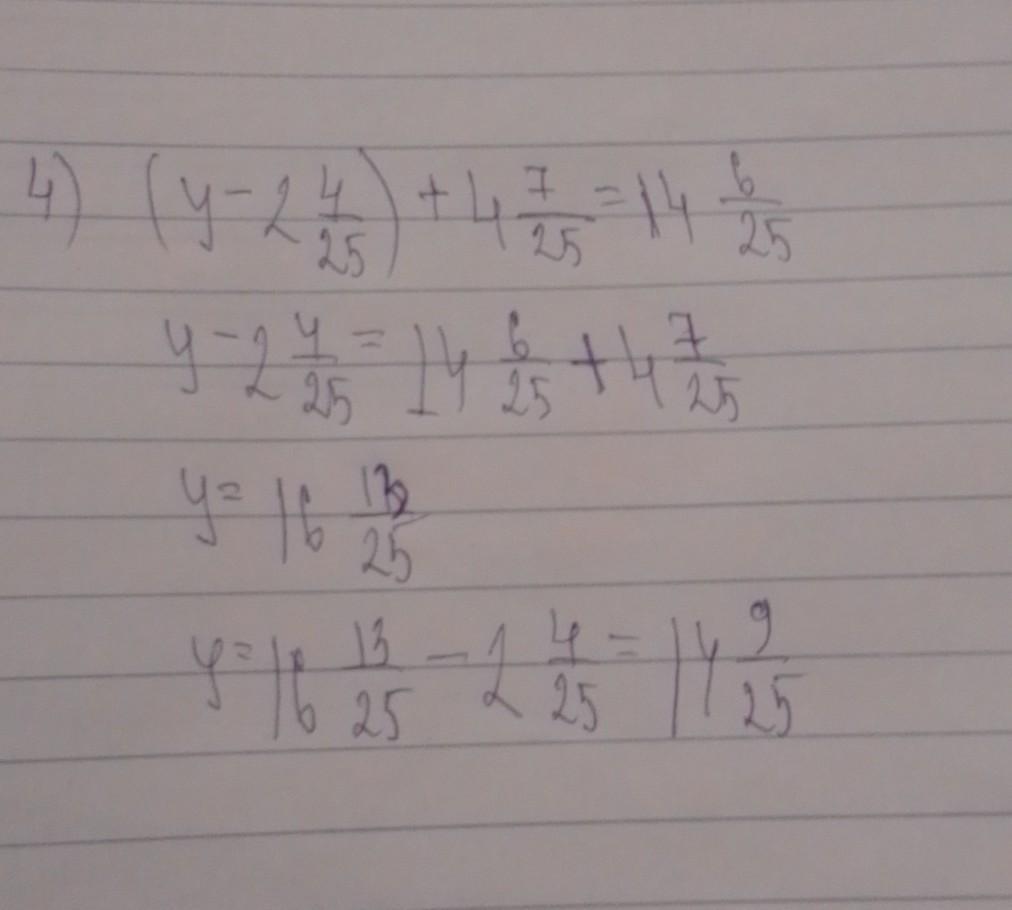 4) (y - 2 4/25) + 4 7/25 = 14 6/25
y - 2 4/25 = 14 6/25 + 4 7/25
y = 16 13/25
y = 16 13/25 - 2 4/25 = 14 9/25